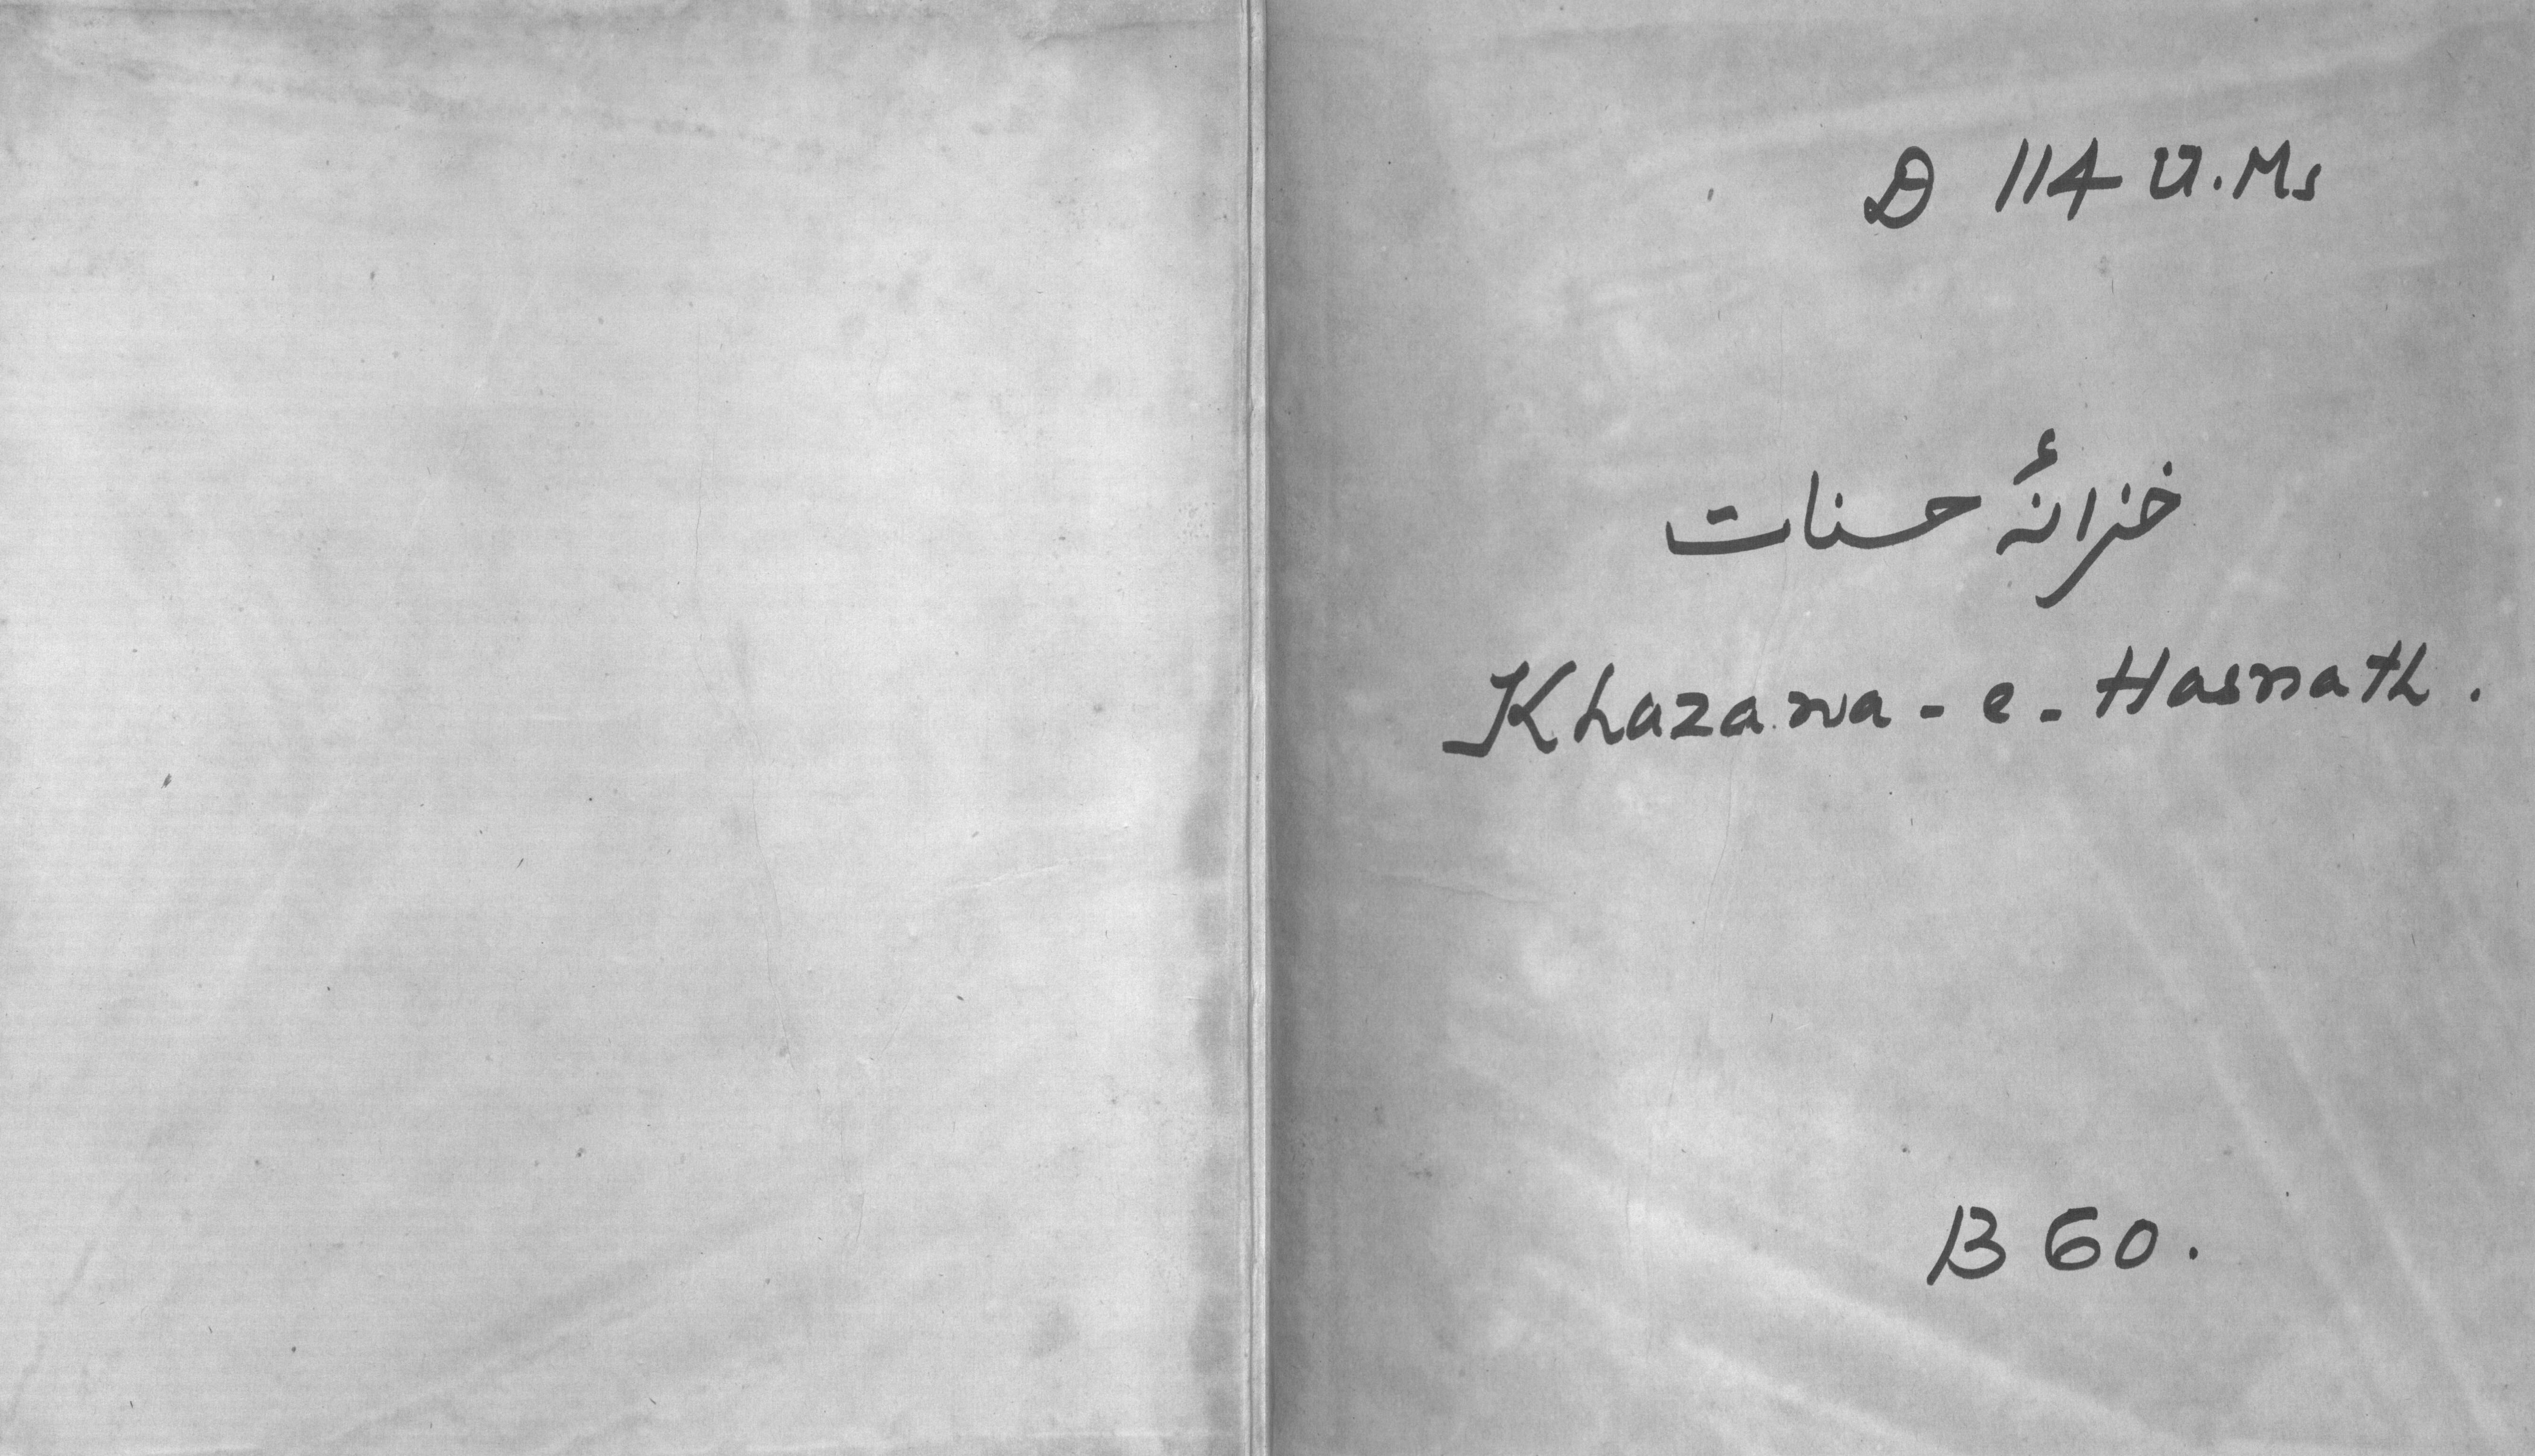 D 114 U.Ms
خزانۂ حسنات
Khazana - e - Hasnath.
B 60.